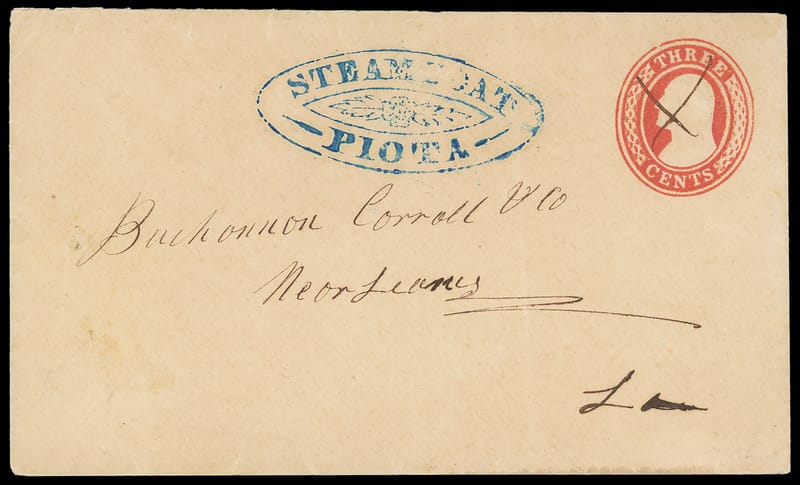 STEAMBOAT
PIOTA
THREE
CENTS
Buchonnon Corroll & Co
Neorleans
La